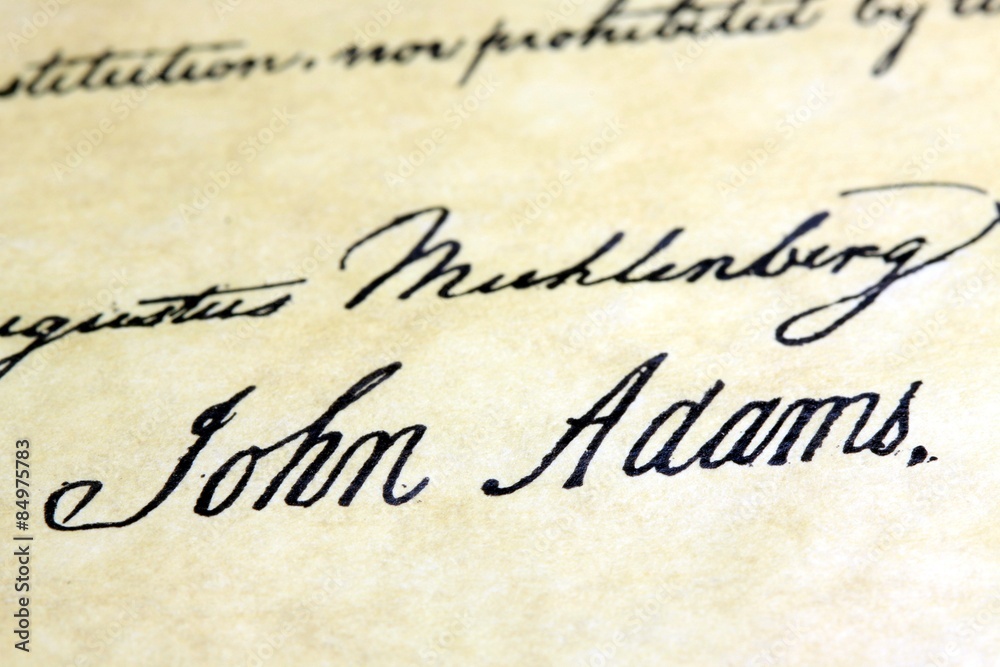 stitution, nor prohibited by
ugustus Muhlenberg
John Adams.
Adobe Stock | #84975783